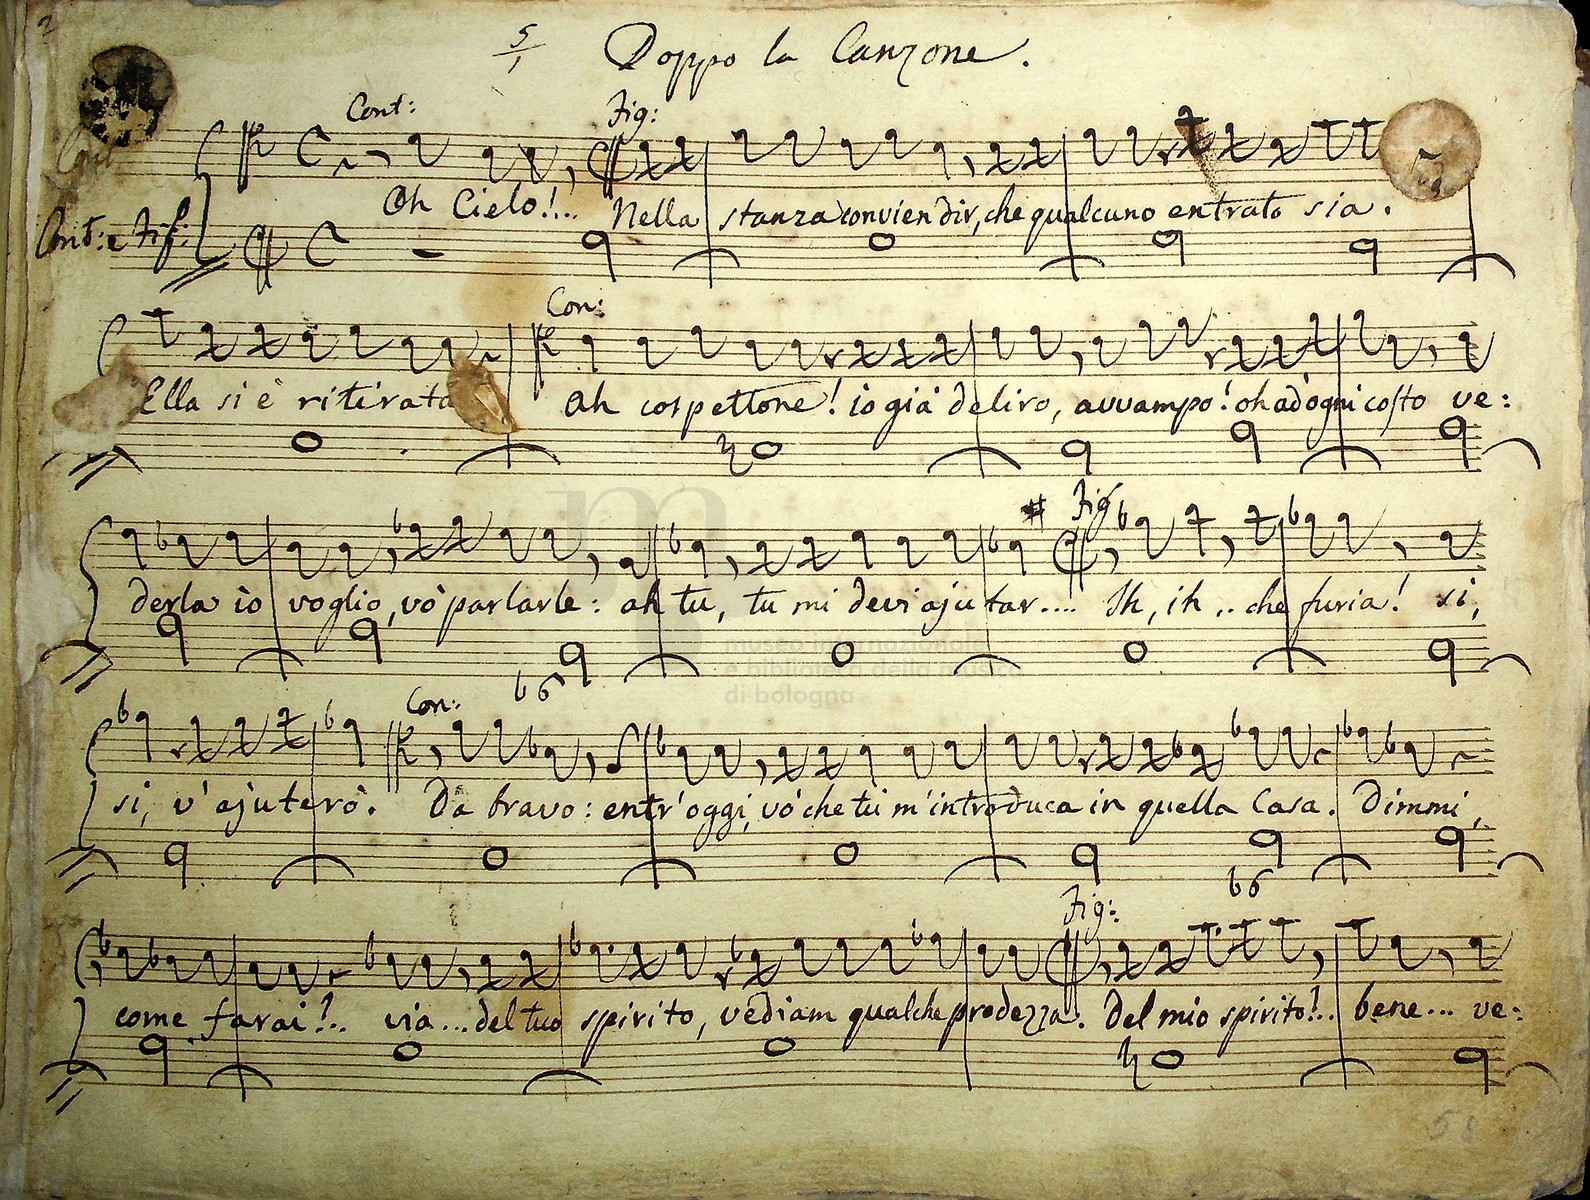 2
5/1 Doppo la Canzone.
Cont: Fig:
Cont: e Fig:
Oh Cielo!... Nella stanza convien dir, che qualcuno entrato sia.
Con:
Ella si è ritirata Ah cospettone! io già deliro, avvampo! oh ad ogni costo ve:
Fig
derla io voglio, vo' parlarle: ah tu, tu mi devi ajutar.... Ih, ih .. che furia! si,
b6
Con:
si, v' ajuterò. Da bravo: entr' oggi, vo' che tu m' introduca in quella Casa. Dimmi,
b6
Fig:
come farai?.. via... del tuo spirito, vediam qualche prodezza. Del mio spirito!.. bene... ve:
museo internazionale
e biblioteca della musica
di bologna
58